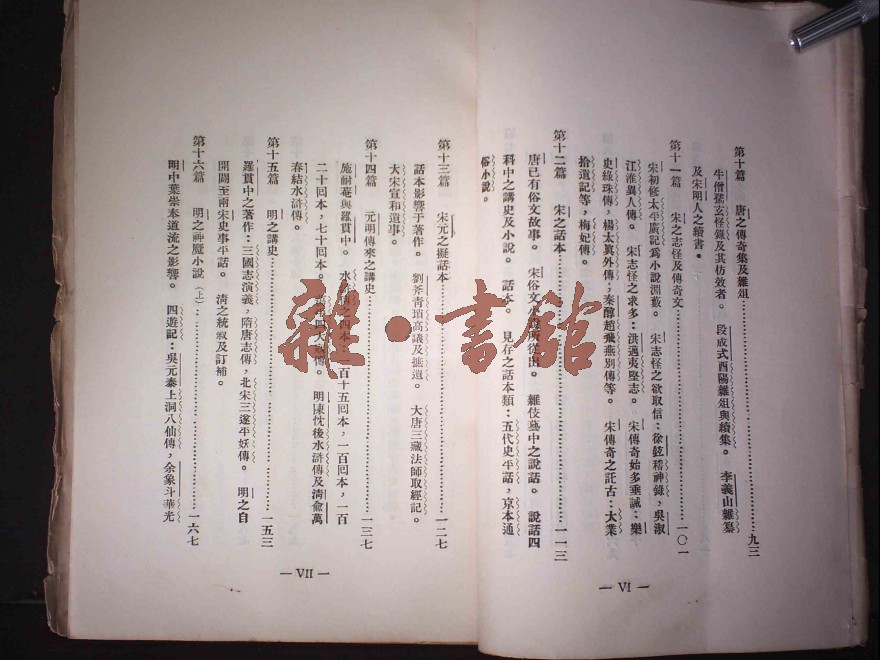 第十篇　唐之傳奇集及雜俎……九三
牛僧孺玄怪錄及其仿效者。　段成式酉陽雜俎與續集。　李義山雜纂
及宋明人之續書。
第十一篇　宋之志怪及傳奇文……一〇一
宋初修太平廣記為小說淵藪。　宋志怪之欲取信：徐鉉稽神錄，吳淑
江淮異人傳。　宋志怪之求多：洪邁夷堅志。　宋傳奇始多垂誡：樂
史綠珠傳，楊太眞外傳；秦醇趙飛燕別傳等。　宋傳奇之託古：大業
拾遺記等，梅妃傳。
第十二篇　宋之話本……一一三
唐已有俗文故事。　宋俗文小說所從出。　雜伎藝中之說話。　說話四
科中之講史及小說。　話本。　見存之話本類：五代史平話，京本通
俗小說。
— VI —
第十三篇　宋元之擬話本……一二七
話本影響于著作。　劉斧青瑣高議及摭遺。　大唐三藏法師取經記。
大宋宣和遺事。
第十四篇　元明傳來之講史……一三七
施耐菴與羅貫中。　水滸傳之四本：一百十五回本，一百回本，一百
二十回本，七十回本。　明陳忱後水滸傳及清俞萬
春結水滸傳。
第十五篇　明之講史……一五三
羅貫中之著作：三國志演義，隋唐志傳，北宋三遂平妖傳。　明之自
開闢至兩宋史事平話。　清之統叙及訂補。
第十六篇　明之神魔小說（上）：……一六七
明中葉崇奉道流之影響。　四遊記：吳元泰上洞八仙傳，余象斗華光
— VII —
雜·書館